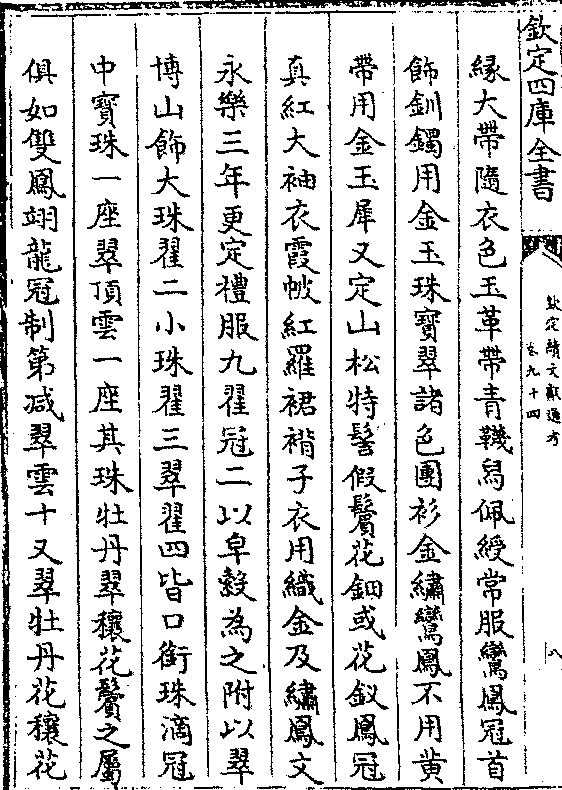 欽定四庫全書
欽定續文獻通考
卷九十四
八
緣大帶隨衣色玉革帶青韈舄佩綬常服鸞鳳冠首
飾釧鐲用金玉珠寶翠諸色團衫金繡鸞鳳不用黄
帶用金玉犀又定山松特髻假鬢花鈿或花釵鳳冠
真紅大袖衣霞帔紅羅裙褙子衣用織金及繡鳳文
永樂三年更定禮服九翟冠二以皁縠為之附以翠
博山飾大珠翟二小珠翟三翠翟四皆口銜珠滴冠
中寳珠一座翠頂雲一座其珠牡丹翠穰花鬢之屬
俱如雙鳳翊龍冠制第减翠雲十又翠牡丹花穰花